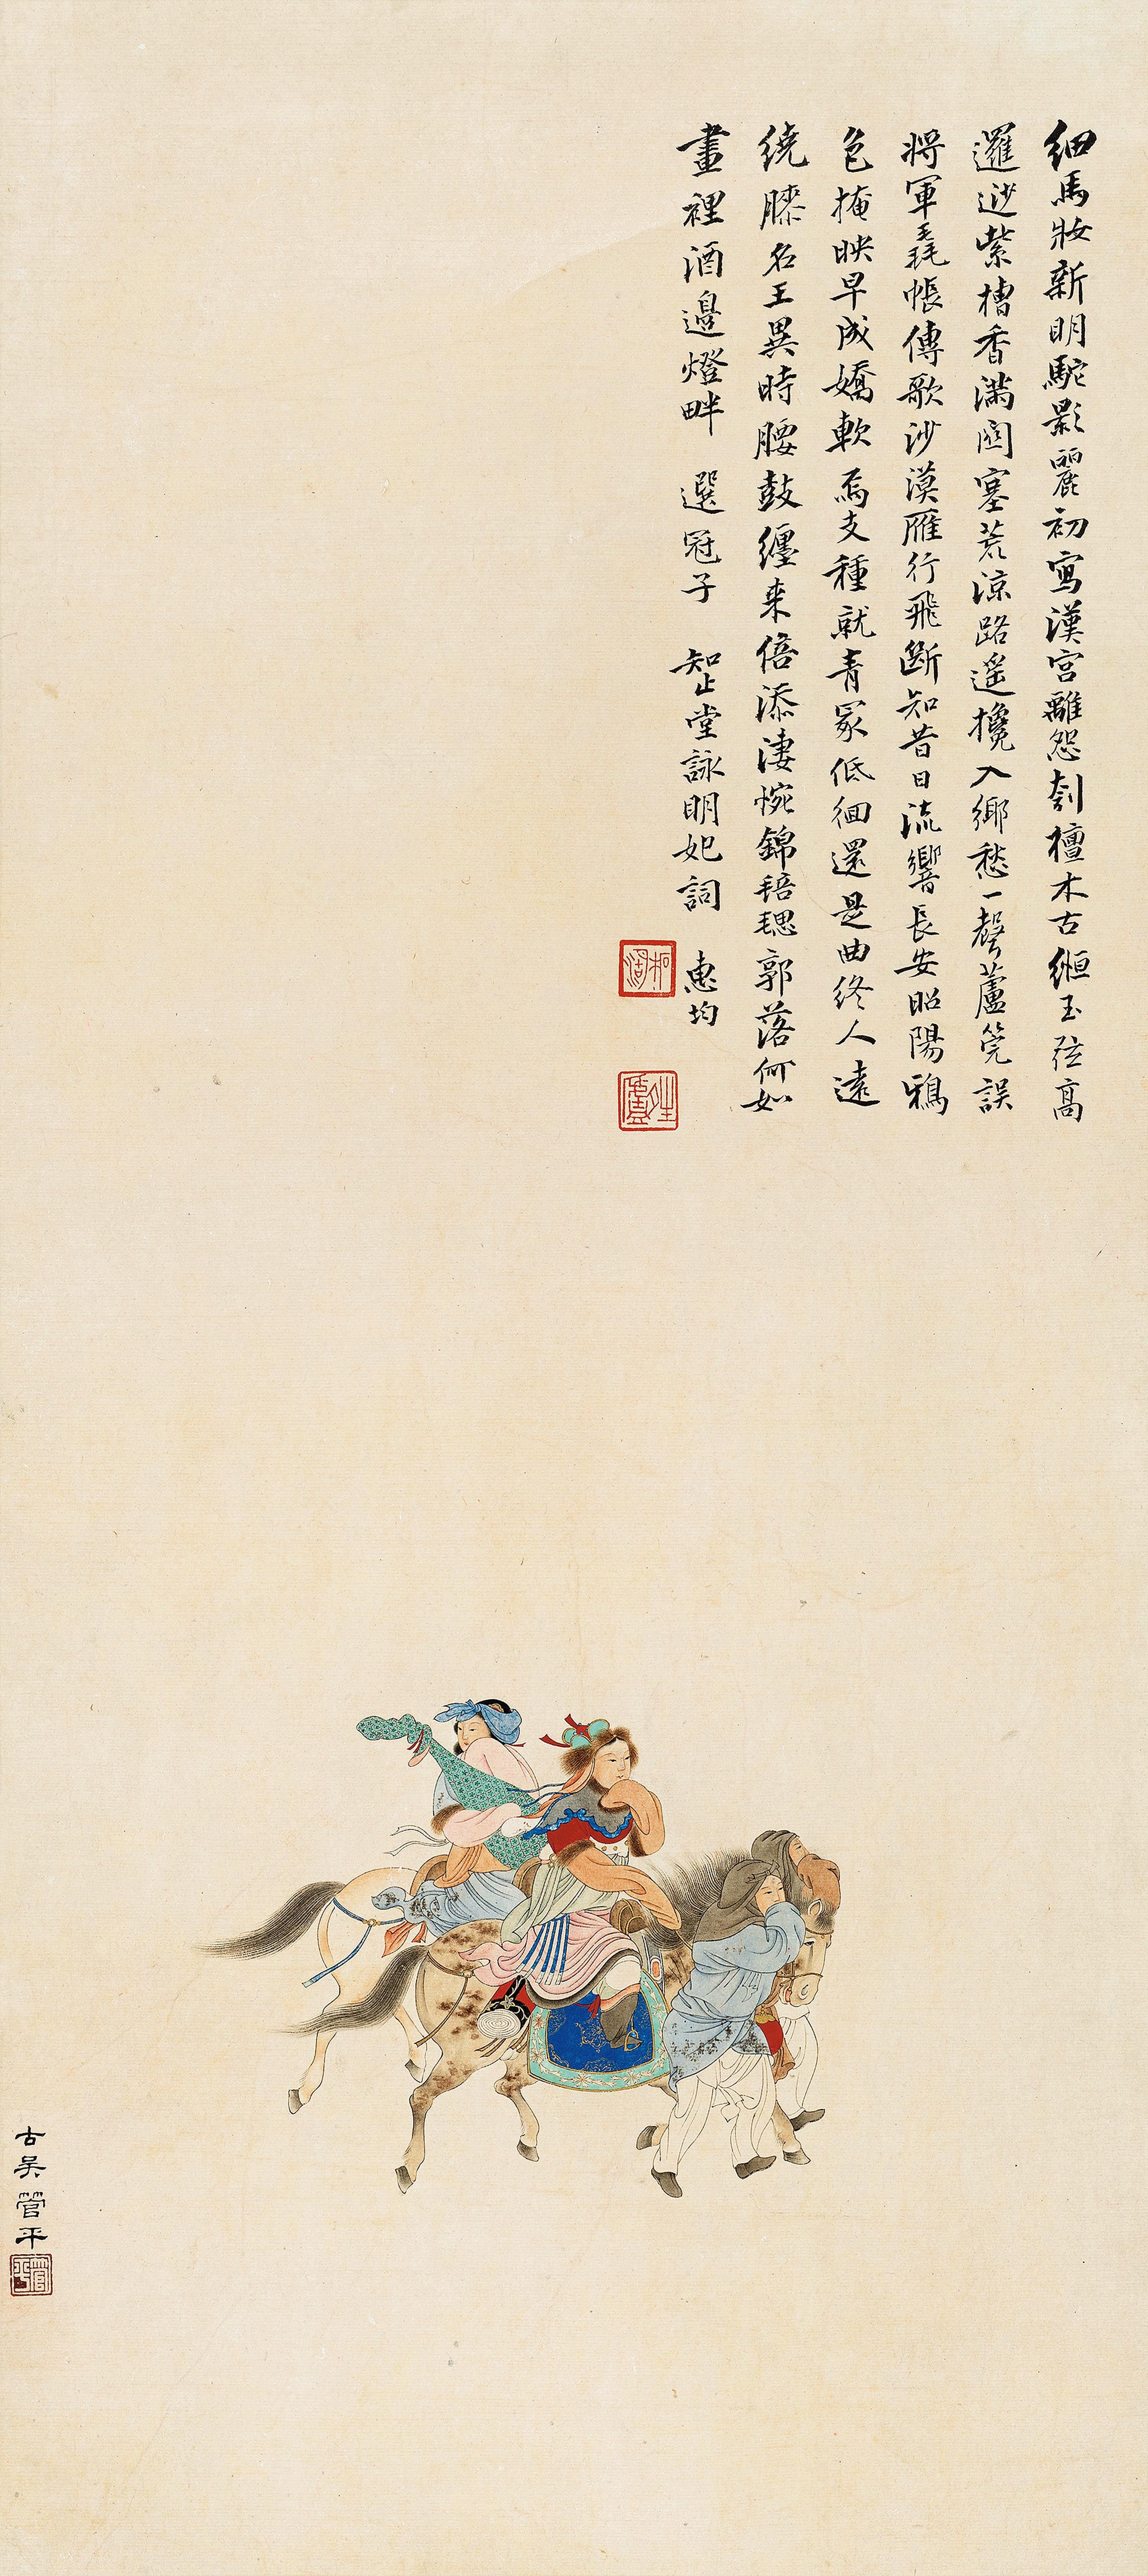 細馬妝新明駝影麗初寫漢宮離怨刳檀木古緪玉弦高
邏逤紫槽香滿關塞荒涼路遙攙入鄉愁一聲蘆筦誤
將軍毳帳傳歌沙漠雁行飛斷知昔日流響長安昭陽鴉
色掩映早成嬌軟焉支種就青冢低徊還是曲終人遠
繞膝名王異時腰鼓纏來倍添淒惋錦毰毸郭落何如
畫裡酒邊燈畔 選冠子 知止堂詠明妃詞 惠均
柘湖
古吳管平
管平